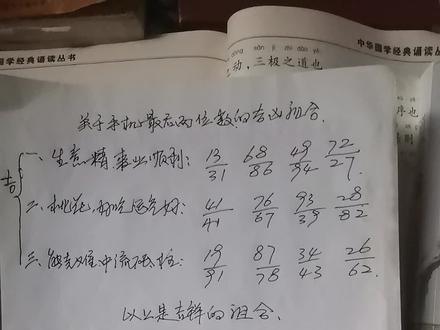 国学经典诵读丛书
中华国学经典诵读
dòng sān jí zhī dào yě
动，三极之道也
序也
关于手机最后两位数的吉凶组合.
吉
一、生意精 事业顺利: 13/31 68/86 49/94 72/27.
二、桃花, 好吃运气好: 41/14 76/67 93/39 28/82
三、 中流: 19/91 87/78 34/43 26/62.
以上是吉祥的组合.